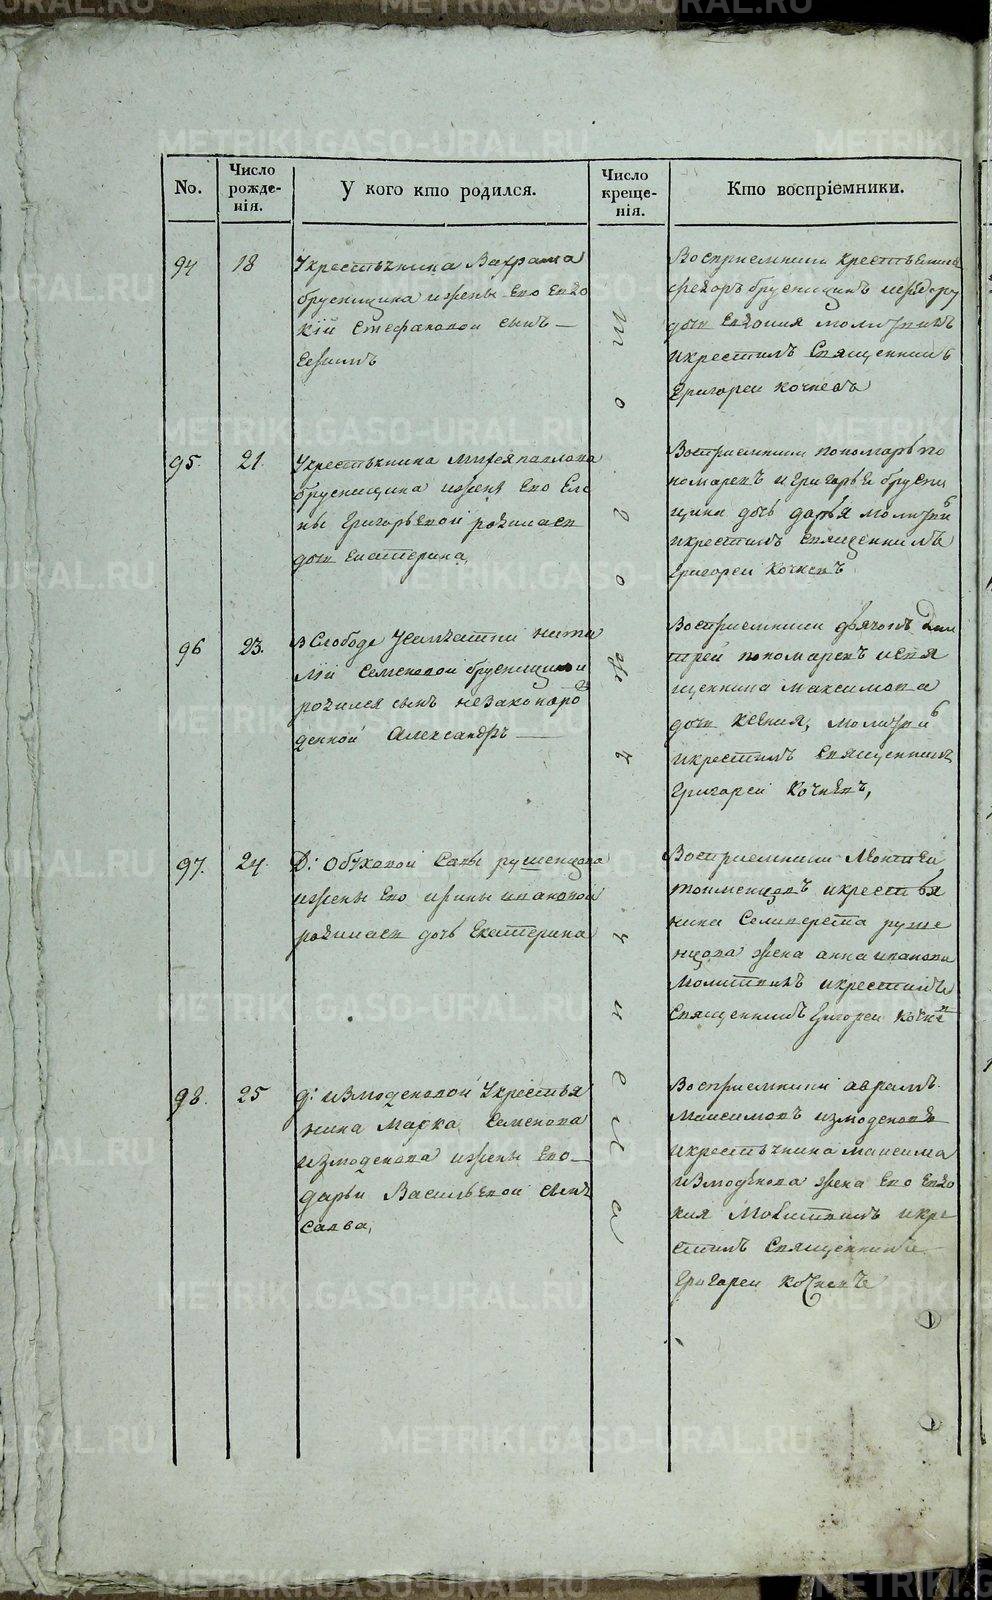 No.
Число рожде-нія.
У кого кто родился.
Число креще-нія.
Кто воспріемники.
94
18
Укрестьянина Вахрама
брусницина ижены Его Евдо
кїи Стефановой сынъ
Ефимъ
Восприемники крестьянинъ
федоръ брусницинъ
дочь Евдокия молитвилъ
икрестилъ Священникъ
Григореи Кочневъ
95.
21.
Укрестьянина павлова
брусницина ижены Его Еле
ны Григорьевой родилась
дочь Екатерина,
Восприемники пономарь по
номаревъ и Григорья брусни
цина дочь дарья молитви
икрестилъ священникъ
Григореи Кочневъ
96
23.
вСлободе Усолдатки ната
лїи Семеновой брусницыной
родился сынъ незаконоро
жденной Александръ
Восприемники дьячокъ Дми
трей пономаревъ исвя
щенника Максимова
дочь Ксения, молитви
икрестилъ священникъ
Григореи Кочневъ,
97.
24.
Д: Обуховой Савы рушенцова
ижены Его ирины ивановой
родилась дочь Екатерина
Восприемники
икрестья
нина Селиверста руше
нцова жена анна иванова
Молитвилъ икрестилъ
Священникъ Григореи Кочне
98.
25
д: измоденовой Укрестья
нина Марка Семенова
измоденова ижены Его
дарьи Васильевой сынъ
Савва,
Восприемники аврамъ
Максимовъ измоденовъ
икрестьянина максима
измоденова жена Его Евдо
кия Молитвилъ икре
стилъ Священникъ
Григореи Кочневъ
того же числа
METRIKI.GASO-URAL.RU